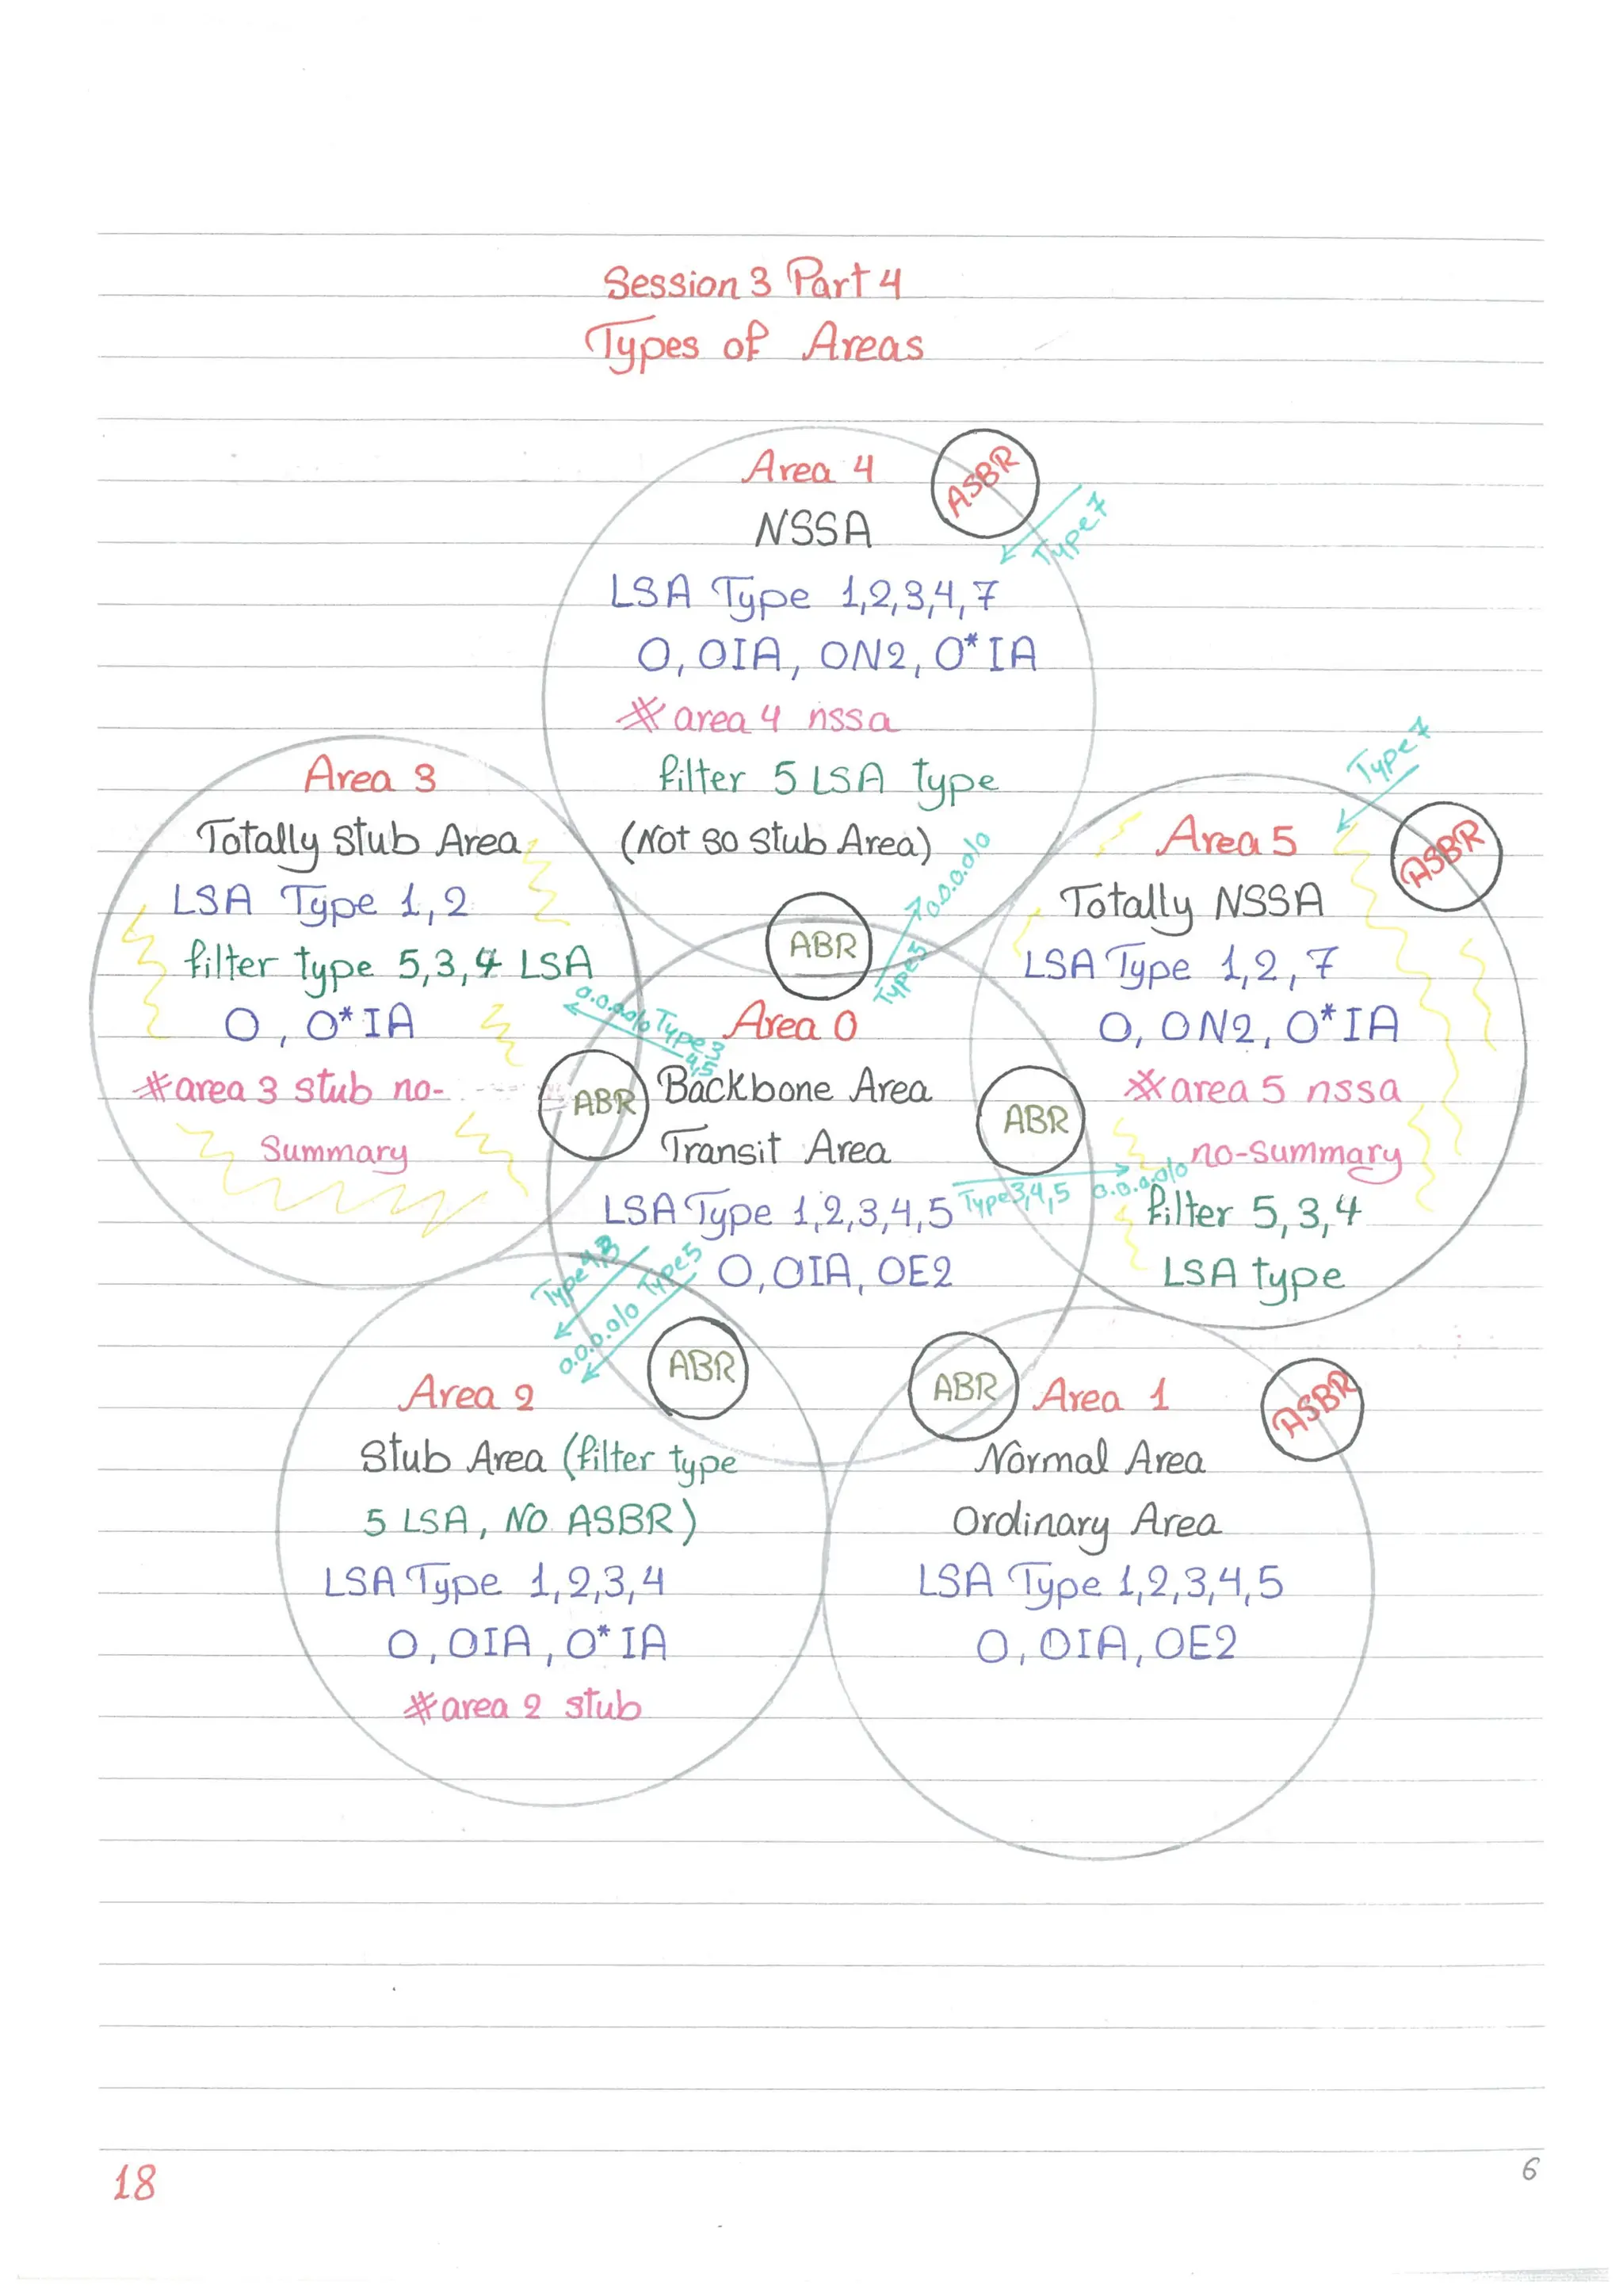 Session 3 Part 4
Types of Areas
Area 4
ASBR
NSSA
Type 7
LSA Type 1,2,3,4,7
O, OIA, ON2, O*IA
# area 4 nssa
filter 5 LSA type
(Not so stub Area)
ABR
Type5
0.0.0.0/0
Area 3
Totally stub Area
LSA Type 1,2
filter type 5,3,4 LSA
O, O*IA
# area 3 stub no-
Summary
0.0.0.0/0 Type 3
4,5
ABR
Type 7
Area 5
ASBR
Totally NSSA
LSA Type 1,2,7
O, ON2, O*IA
# area 5 nssa
no-summary
filter 5,3,4
LSA type
Area 0
Backbone Area
Transit Area
LSA Type 1,2,3,4,5
O, OIA, OE2
ABR
Type3,4,5 0.0.0.0/0
Type4,3
0.0.0.0/0 Type5
ABR
Area 2
Stub Area (filter type
5 LSA, NO ASBR)
LSA Type 1,2,3,4
O, OIA, O*IA
# area 2 stub
ABR
Area 1
ASBR
Normal Area
Ordinary Area
LSA Type 1,2,3,4,5
O, OIA, OE2
18
6